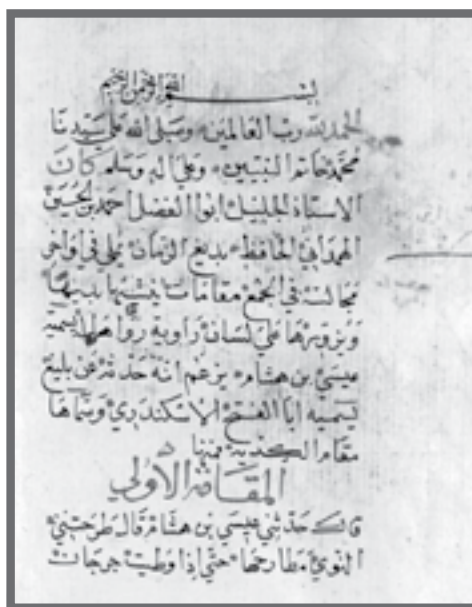 بسم الله الرحمن الرحيم
الحمد لله رب العالمين وصلى الله على سيدنا
محمد خاتم النبيين وعلى اله وسلم كان
الاستاذ الجليل ابوا الفضل احمد بن الحسين
الهمداني الحافظ بديع الزمان يملي في اواخر
مجالسه في الجمع مقامات ينشيها بديها
ويرويها على لسان راوية رواها له يسميه
عيسى بن هشام يزعم انه حدثه عن بليغ
يسميه ابا الفتح الاسكندري وسماها
مقام الكدية فمنها
المقامة الأولى
قال حدثني عيسى بن هشام قال طرحتني
النوى مطارحها حتى اذا وطيت جرجان